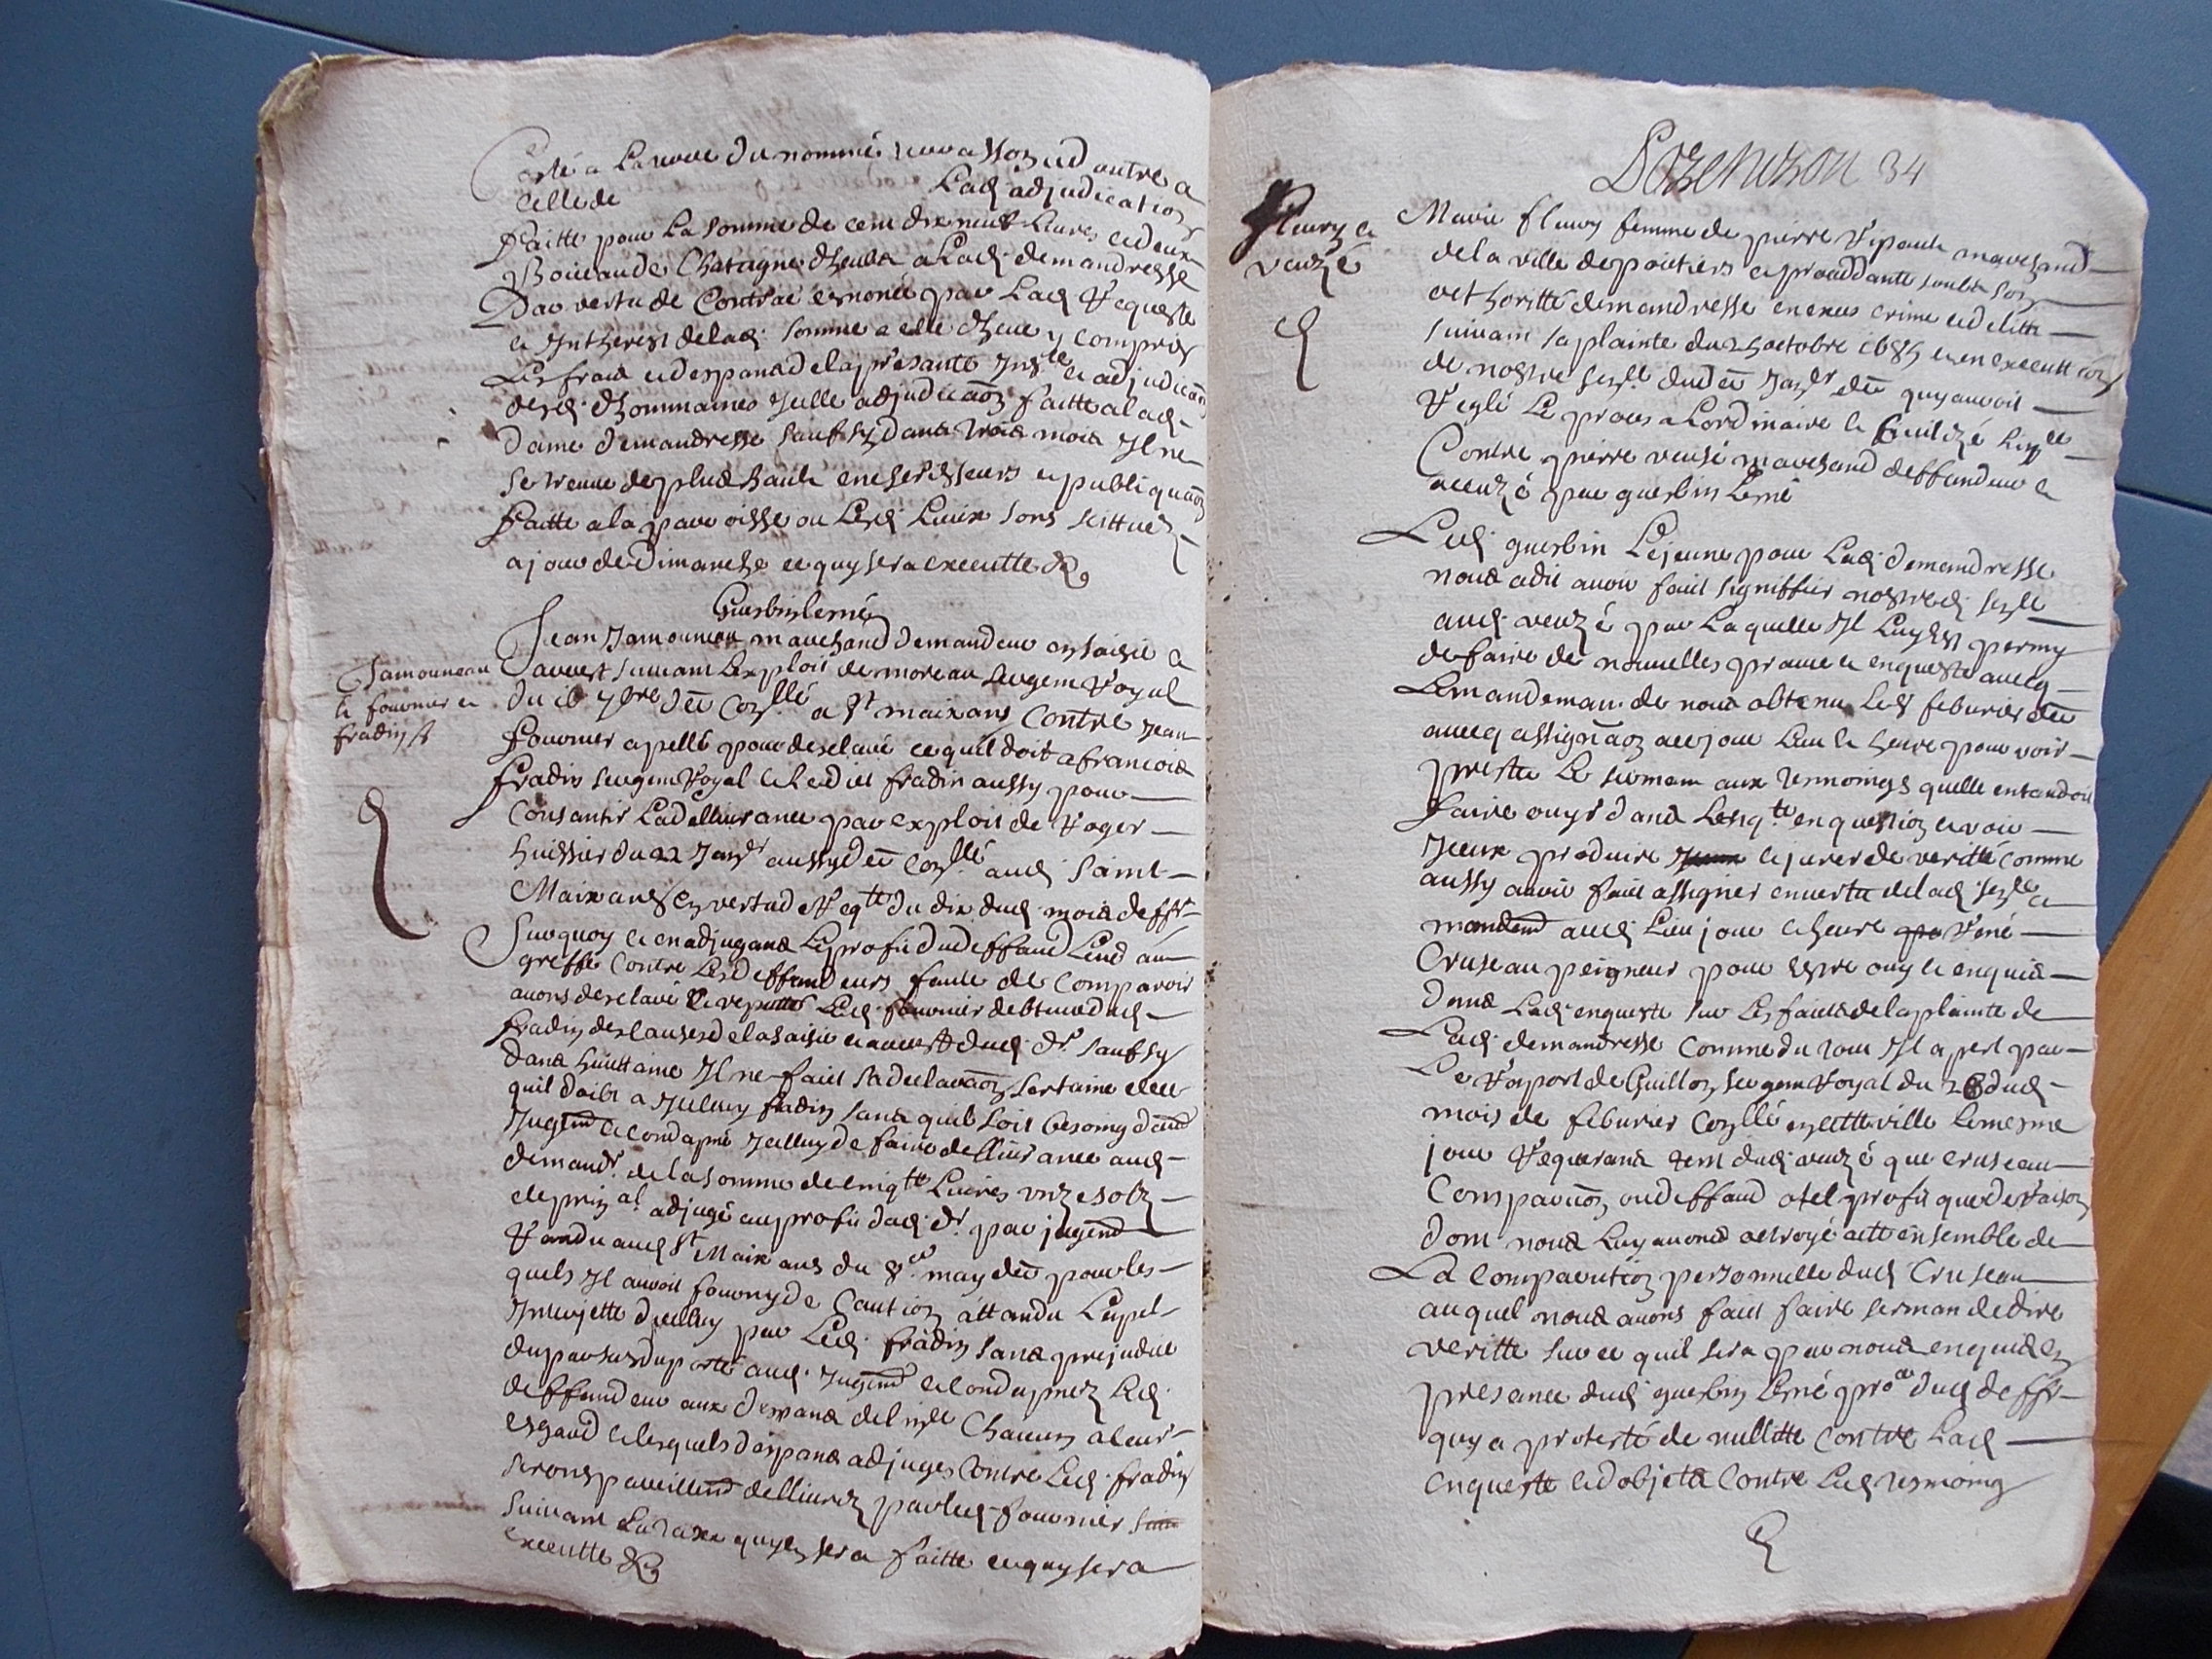 Costé a la
celle de Lad adjudication
faitte pour la somme de cent dix neuf livres et deux
Boiceau de Chataigne dheubt a Lad. demandresse
Par vertu de Contrac esnoncé par Lad Requeste
et Intherest de lad. somme a elle dheue y compris
Les frais et despans de la presante Insle et adjudicaon
desd. dhommaines Icelle adjudicaon faitte a lad-
Dame demandresse sauf sy dans trois mois Il ne
se treuve de plus hault encherisseurs et publiquaon
faitte a la parroisse ou Lesd. Lieux sons scittuez
a jour de Dimanche ce quy sera executté &
Guerbin lesné
Jean Jamouneau marchand demandeur en saisie et
arrest suivant Lexploit de moreau sergent Royal
du 16 7bre der Conllé a St maixans Contre Jean
fournier apellé pour desclaré ce quil doit a francois
fradin sergent Royal et led fradin aussy pour
Consantir La dellivrance par exploit de Roger
huissier du 22 Janvr aussy der Conllé aud saint
Maixans en vertu de Reqte du dix dud. mois deffr
Jamouneau
et fournier et
fradin
Sur quoy et en adjugeans Le profit du deffaud Levé au
greffe Contre Les deffandeurs faute de Comparoir
avons desclaré et reputté Led. fournier debteur dud
fradin des causes de la saisie et arrest dud. dr. sauf sy
dans huittaine Il ne fait sa desclaraon sertaine de ce
quil doibt a Icelluy fradin sans quil soit besoing dautre
Jugemt et condapné Icelluy de faire dellivrance aud
demandr. de la somme de cinqte Livres unze solz
de prinal. adjugé au profit dud. dr. par jugemt
Randu aud St Maixans du 8e may der pour les
quels Il avoit fourny de Caution attandu Lapel
Interjetté dicelluy par Led. fradin sans prejudice
du parsus du porté aud. Jugemt et condapnez Led.
deffandeur aux despans de linsle Chacun a leur
esgard et lesquels despans adjuges contre Led. fradin
seront pareillemt dellivrez par led fournier
suivant La taxe quy en sera faitte ce quy sera
executté &
34
fleury et
veuzé
Marie fleury femme de pierre Ripault marchand
de la ville de poictiers et proceddante soubt son
authoritté demandresse en exces crime et delitt
suivant sa plainte du 25 octobre 1685 et en executtion
de nostre senle dud et Janvr der quy auroit
Reglé Le proces a Lordinaire et Civilizé linsle
Contre pierre veuzé marchand deffandeur et
accuzé par guerbin Lesné
Led. guerbin Lejeune pour Lad. demandresse
nous a dit avoir fait signiffier nostred. senle
aud. veuzé par Laquelle Il Luy est permy
de faire de nouvelles preuve et enqueste avecq
Lemandement de nous obtenu Le 8 feburier der
avecq assignaon a ce jour Lieu et heure pour voir
prester Le serment aux tesmoings quelle entandoit
faire ouyr dans Lenqte en question et voir
Iceux produire et jurer de veritté comme
aussy avoir fait assigner en vertu de lad. senle et
mandemt aud. Lieu jour et heure René
Cruseau peigneur pour estre ouy et enquis
dans Lad. enqueste sur Les faits de la plainte de
Lad. demandresse Comme du tout Il apert par
Le Raport de Guillon sergent Royal du 28 dud
mois de feburier Conllé en cette ville Le mesme
jour Requerans tant dud. veuzé que cruseau
Comparuon ou deffaud a tel profit que de Raison
dont nous Luy avons octroyé acte ensemble de
La comparution personnelle dud. Cruseau
auquel nous avons fait faire serman de dire
veritte sur ce quil sera par nous enquis en
presance dud. guerbin Lesné procr dud deffr
quy a protesté de nullitte contre Lad
enqueste et dobjets contre Led tesmoing